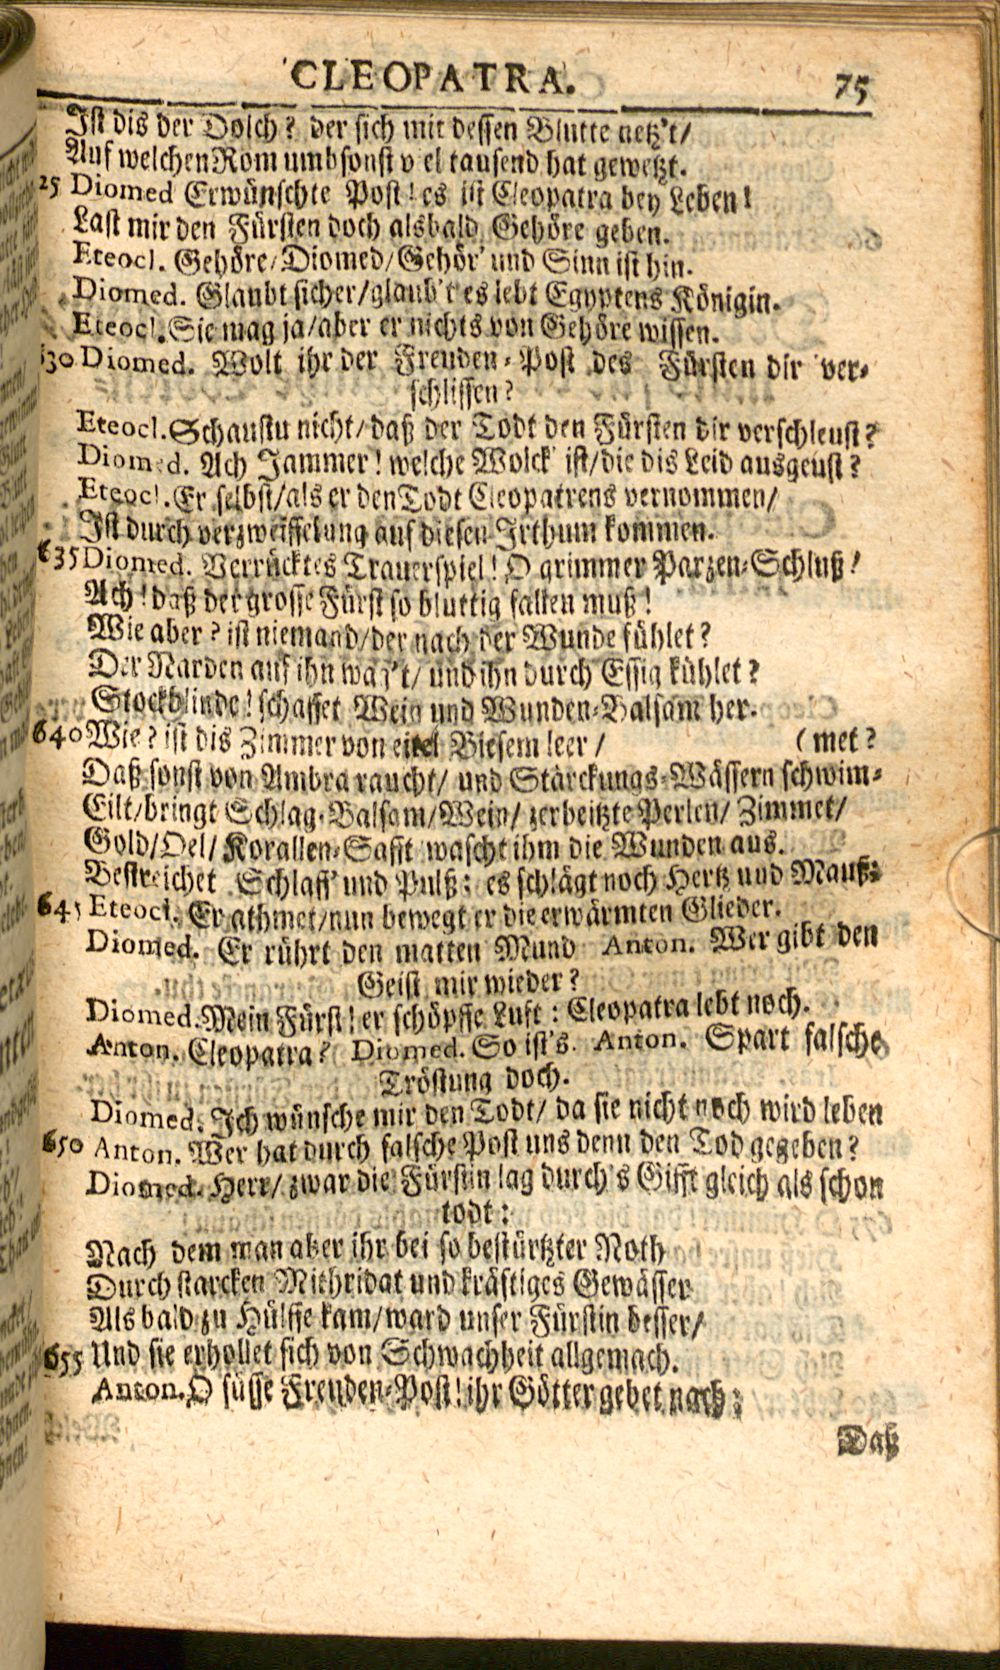 CLEOPATRA. 75
Ist dis der Dolch? der sich mit dessen Blutte netz't/
Auf welchen Rom umbsonst v el tausend hat gewetzt.
25 Diomed Erwünschte Post! es ist Cleopatra bey Leben!
Last mir den Fürsten doch alsbald Gehöre geben.
Eteocl. Gehöre/Diomed/Gehör' und Sinn ist hin.
Diomed. Glaubt sicher/glaub't es lebt Egyptens Königin.
Eteocl. Sie mag ja/aber er nichts von Gehöre wissen.
630 Diomed. Wolt ihr der Freuden-Post des Fürsten Ohr ver-
schlissen?
Eteocl. Schaustu nicht/daß der Todt den Fürsten dir verschleust?
Diomed. Ach Jammer! welche Wolck' ist/die dis Leid ausgeust?
Eteocl. Er selbst/als er den Todt Cleopatrens vernommen/
Ist durch verzweiffelung auf diesen Irthum kommen.
635 Diomed. Verrücktes Trauerspiel! O grimmer Parzen-Schluß!
Ach! daß der grosse Fürst so bluttig fallen muß!
Wie aber? ist niemand/der nach der Wunde fühlet?
Der Narden auf ihn wäs't/ und ihn durch Essig kühlet?
Stockblinde! schaffet Wein und Wunden-Balsam her.
640 Wie? ist dis Zimmer von eitel Biesem leer/ (met?
Daß sonst von Ambra raucht/ und Stärckungs-Wässern schwim-
Eilt/bringt Schlag-Balsam/Wein/ zerbeitzte Perlen/ Zimmet/
Gold/Oel/ Korallen-Safft wascht ihm die Wunden aus.
Bestreichet Schlaff' und Pulß: es schlägt noch Hertz und Mauß:
645 Eteocl. Er athmet/nun bewegt er die erwärmten Glieder.
Diomed. Er rührt den matten Mund Anton. Wer gibt den
Geist mir wieder?
Diomed. Mein Fürst! er schöpffe Luft: Cleopatra lebt noch.
Anton. Cleopatra? Diomed. So ist's. Anton. Spart falsche
Tröstung doch.
Diomed. Ich wünsche mir den Todt/ da sie nicht noch wird leben
650 Anton. Wer hat durch falsche Post uns denn den Tod gegeben?
Diomed. Herr/ zwar die Fürstin lag durch's Gifft gleich als schon
todt:
Nach dem man aber ihr bei so bestürtzter Noth
Durch starcken Mithridat und kräftiges Gewässer
Als bald zu Hülffe kam/ward unser Fürstin besser/
655 Und sie erhollet sich von Schwachheit allgemach.
Anton. O süsse Freuden-Post! ihr Götter gebet nach:
Daß